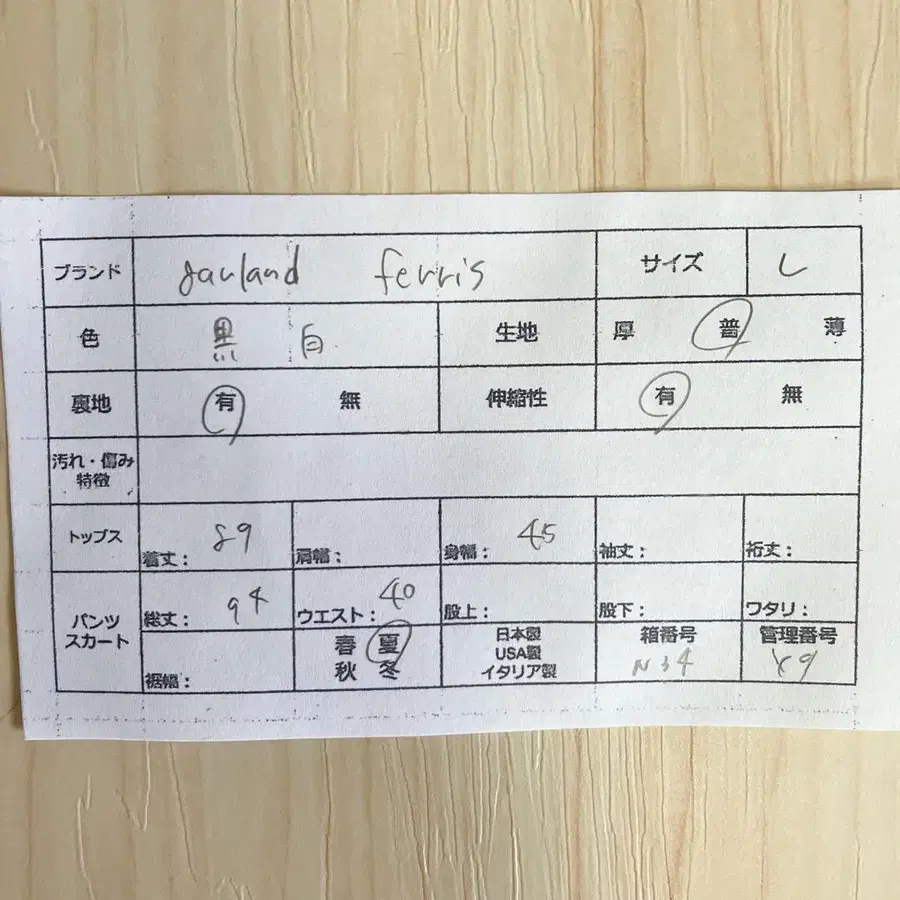 ブランド garland ferris サイズ L
色 黒 白 生地 厚 普 薄
裏地 有 無 伸縮性 有 無
汚れ・傷み
特徴
トップス 着丈： 89 肩幅： 身幅： 45 袖丈： 裄丈：
パンツ
スカート
総丈： 94 ウエスト： 40 股上： 股下： ワタリ：
裾幅：
春 夏
秋 冬
日本製
USA製
イタリア製
箱番号
N34
管理番号